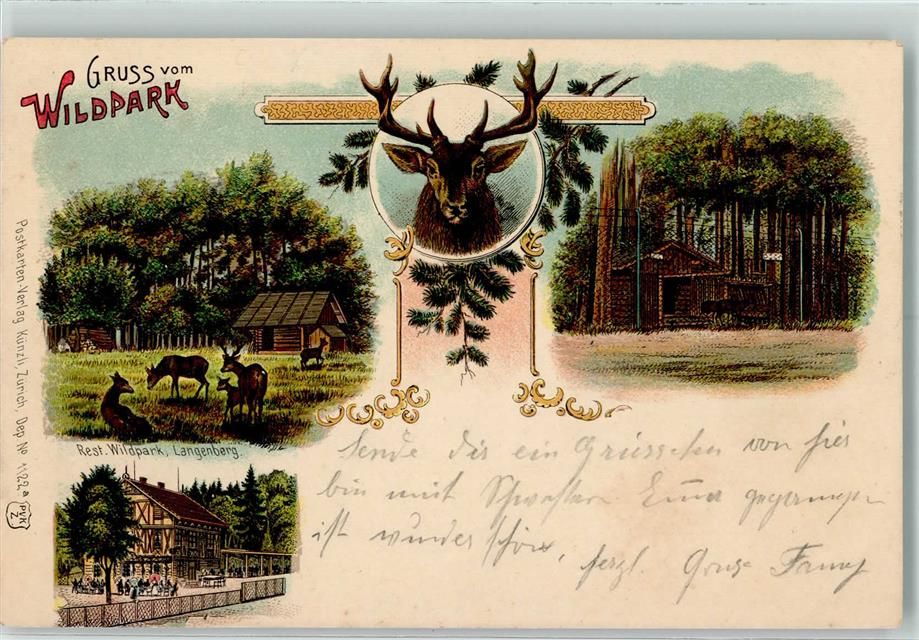 GRUSS vom
WILDPARK
Rest. Wildpark, Langenberg.
Postkarten-Verlag Künzli, Zürich, Dep. No 1122a
PVK
Z.
Sende dir ein Grüsschen von hier
bin mit Schwester Emma gegangen
ist wunderschön, herzl. Gruss Fanny